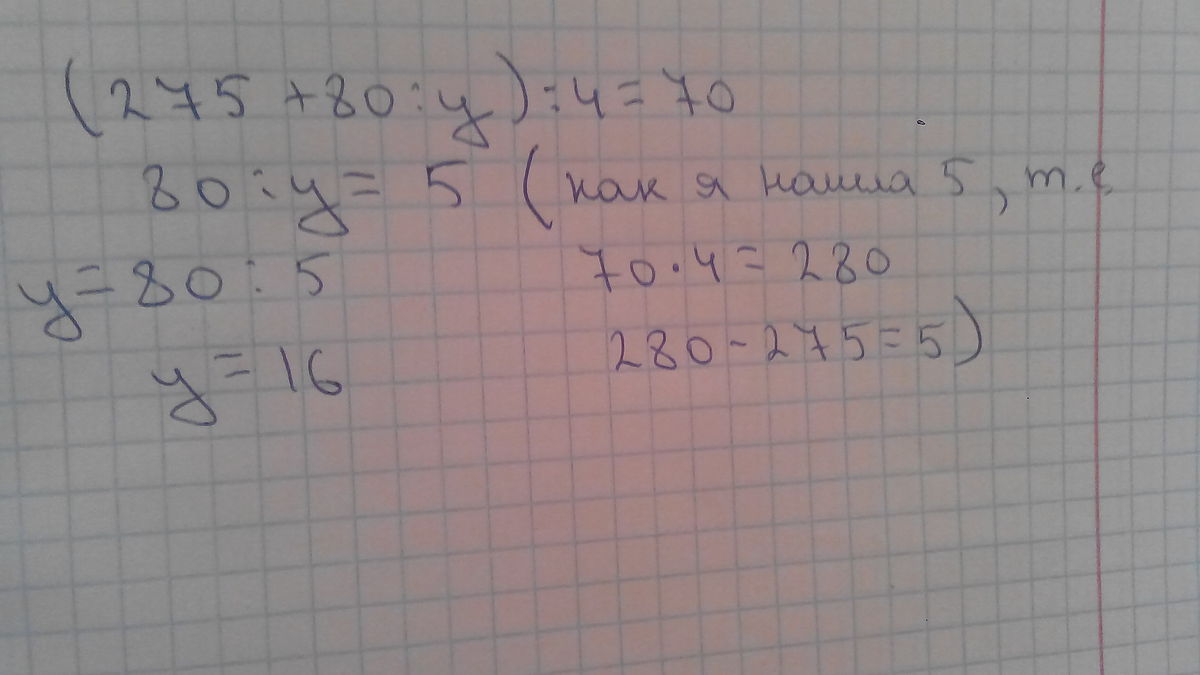 (275 + 80 : y) : 4 = 70
80 : y = 5 (как я нашла 5, т.е
y = 80 : 5 70 · 4 = 280
y = 16 280 - 275 = 5)